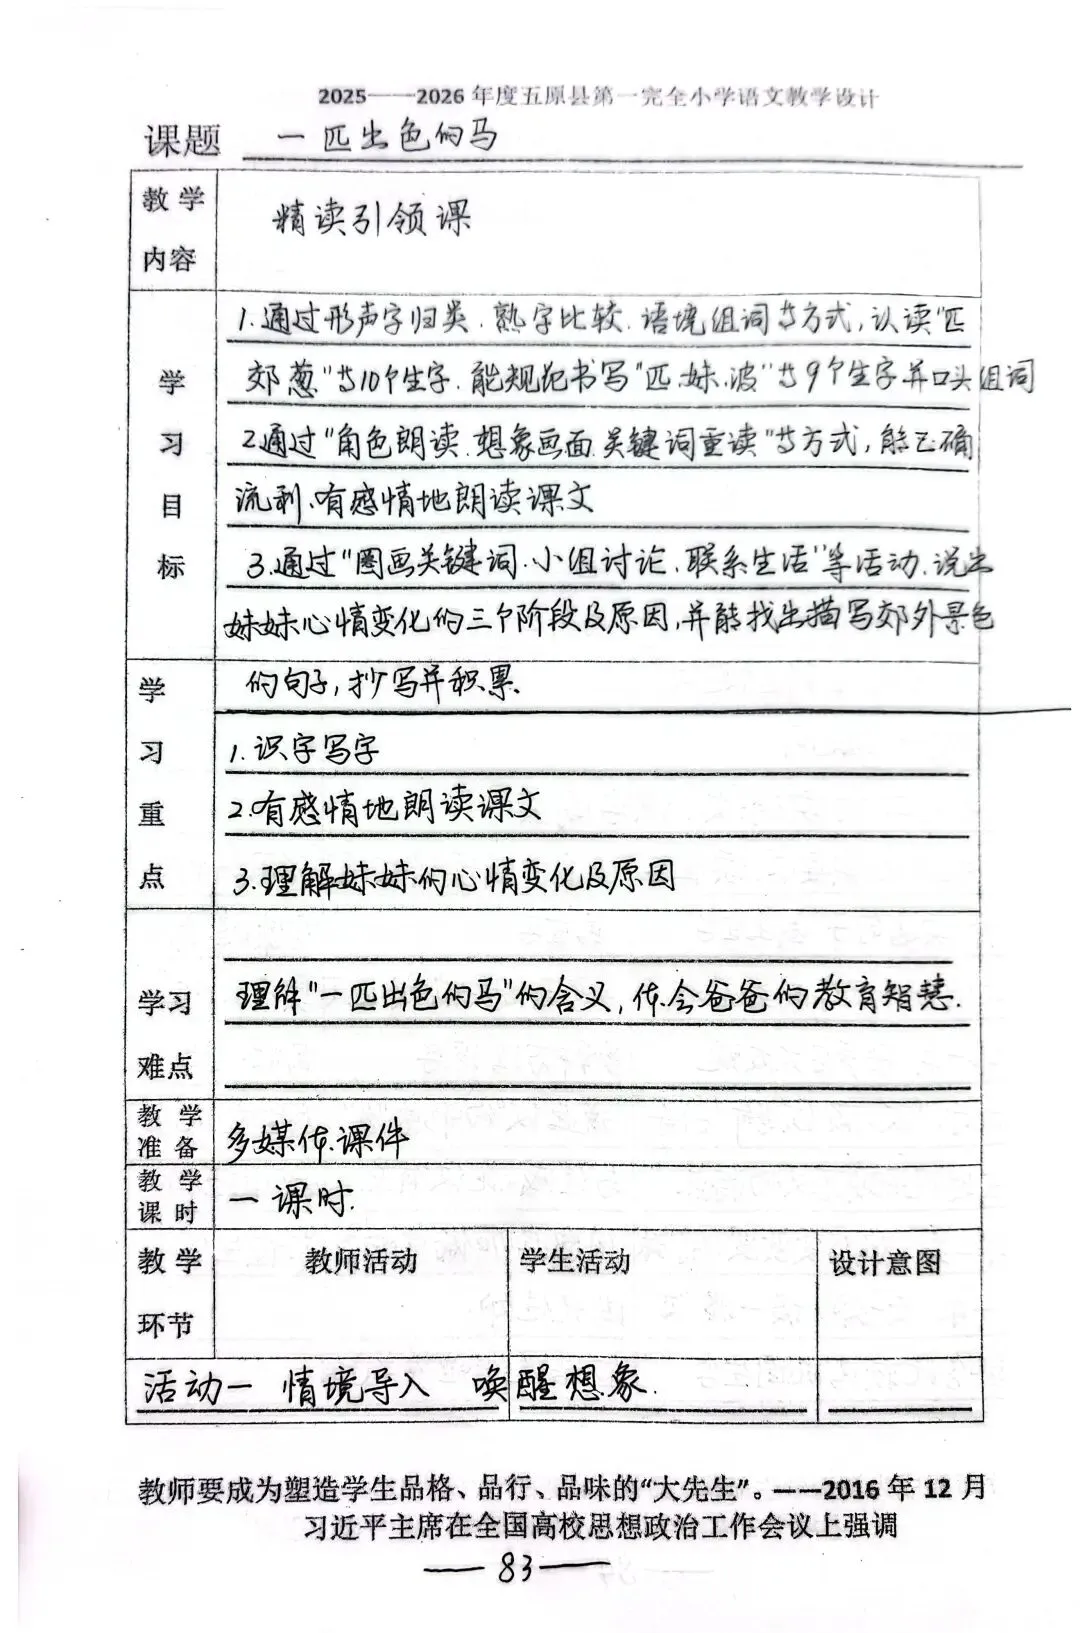 2025——2026年度五原县第一完全小学语文教学设计
课题 一匹出色的马
教学
内容
精读引领课
学
习
目
标
1.通过形声字归类.熟字比较.语境组词等方式,认读"匹
郊葱"等10个生字.能规范书写"匹.妹.波"等9个生字并口头组词
2通过"角色朗读.想象画面.关键词重读"等方式,能正确
流利.有感情地朗读课文
3.通过"圈画关键词.小组讨论.联系生活"等活动.说出
妹妹心情变化的三个阶段及原因,并能找出描写郊外景色
学
习
重
点
的句子,抄写并积累.
1.识字写字
2.有感情地朗读课文
3.理解妹妹的心情变化及原因
学习
难点
理解"一匹出色的马"的含义,体会爸爸的教育智慧.
教 学
准 备
多媒体.课件
教 学
课 时
一课时.
教 学
环节
教师活动 学生活动 设计意图
活动一 情境导入 唤醒想象.
教师要成为塑造学生品格、品行、品味的“大先生”。——2016年12月
习近平主席在全国高校思想政治工作会议上强调
—83—